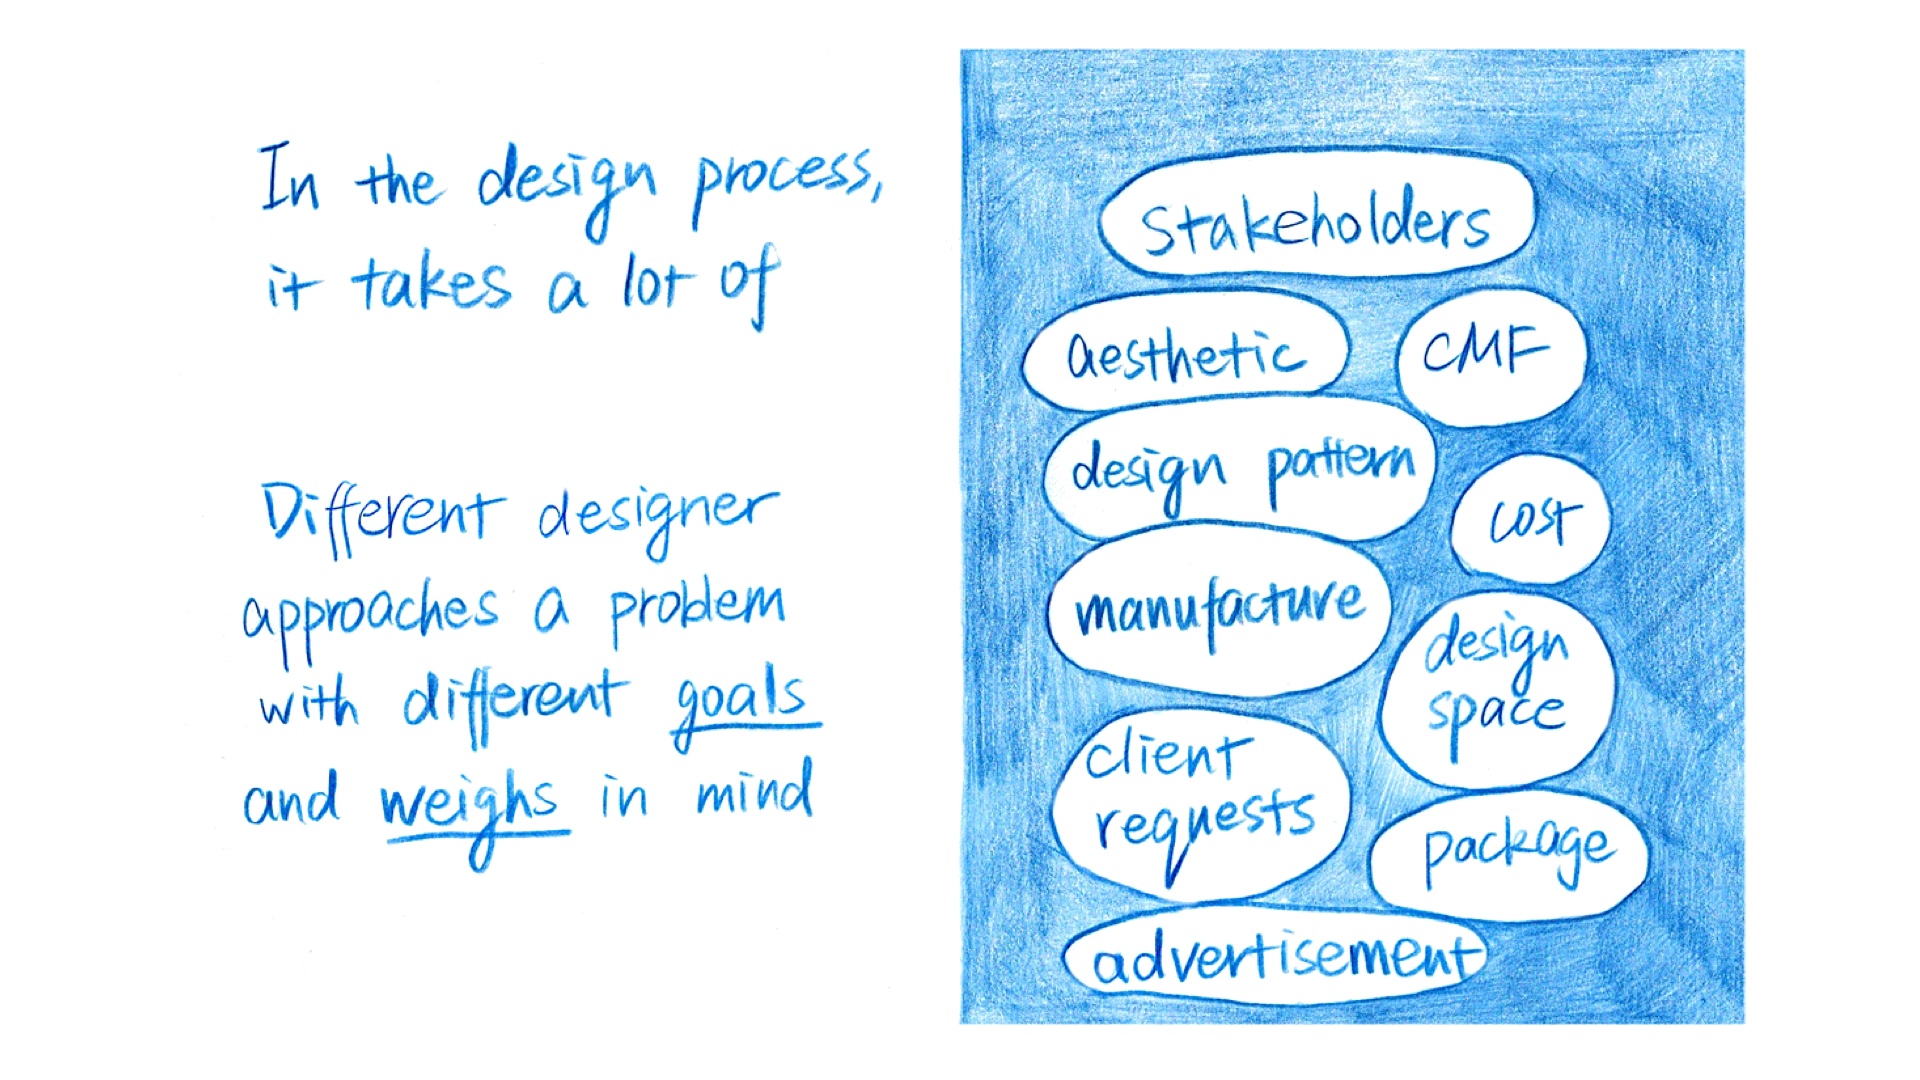 In the design process,
it takes a lot of
Different designer
approaches a problem
with different goals
and weighs in mind
stakeholders
aesthetic
CMF
design pattern
cost
manufacture
design
space
client
requests
package
advertisement